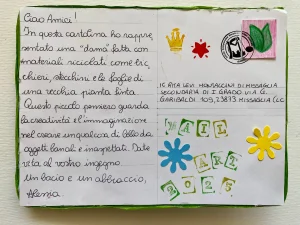 Ciao Amici!
In questa cartolina ho rappre
sentato una "dama" fatta con
materiali riciclati come bic
chieri, stecchini e le foglie di
una vecchia pianta finta
Questo piccolo pensiero guarda
la creatività e l'immaginazione
nel creare un qualcosa di bello da
oggetti banali e inaspettati. Date
vita al vostro ingegno
Un bacio e un abbraccio,
Alessia.
IC RITA LEVI MONTALCINI DI MISSAGLIA
SECONDARIA DI I GRADO VIA G.
GARIBALDI 109, 23873 MISSAGLIA (LC
MAIL
ART
2025